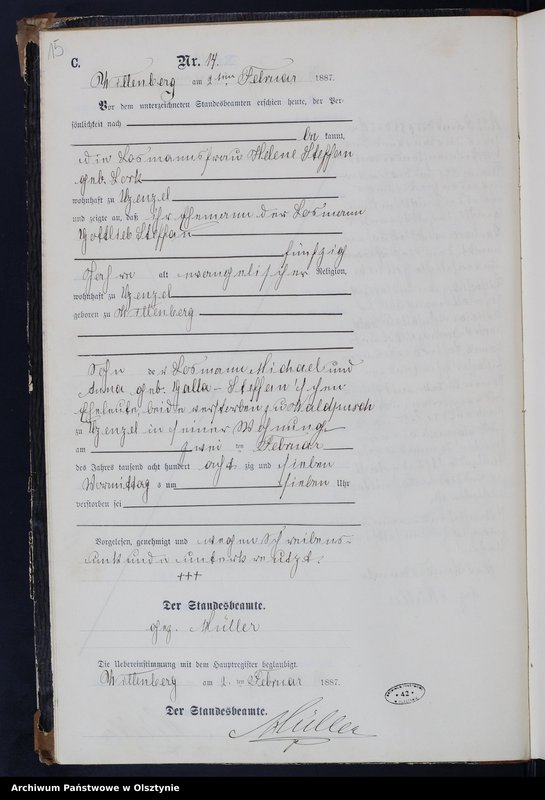 15
C.
Nr. 14.
Willenberg am 2ten Februar 1887.
Vor dem unterzeichneten Standesbeamten erschien heute, der Per-
sönlichkeit nach
be kannt,
die Losmannsfrau Helene Steffan
geb.
wohnhaft zu
und zeigte an, daß ihr Ehemann der Losmann
Gottlieb Steffan
fünfzig
Jahre alt evangelischer Religion,
wohnhaft zu
geboren zu Willenberg
Sohn der Losmann Michael und
Anna geb. Galla - Steffan'schen
Eheleute, beide verstorben,
zu in seiner Wohnung
am zwei ten Februar
des Jahres tausend acht hundert acht zig und sieben
Vormittag s um sieben Uhr
verstorben sei
Vorgelesen, genehmigt und wegen Schreibens-
unkunde unterkreuzt.
+++
Der Standesbeamte.
gez. Müller
Die Uebereinstimmung mit dem Hauptregister beglaubigt.
Willenberg am 2. ten Februar 1887.
Der Standesbeamte.
Müller
42
Archiwum Państwowe w Olsztynie